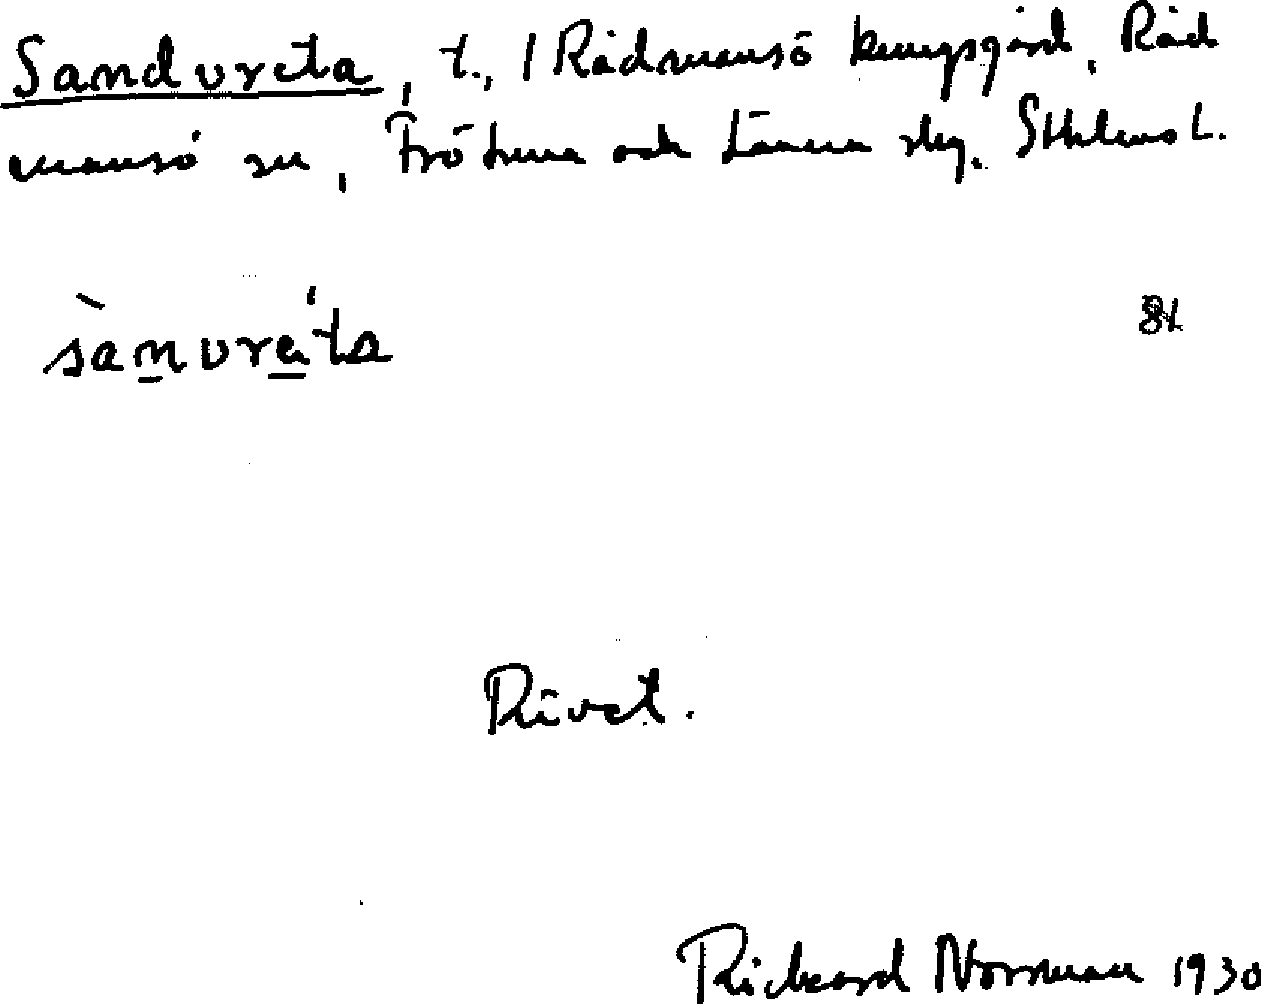 Sandvreta, t., / Rådmansö kungsgård, Råd
mansö sn, Frötuna och Länna slg. Sthlms L.
sànvre̱'ta
81
Rivet.
Rickard Norrman 1930